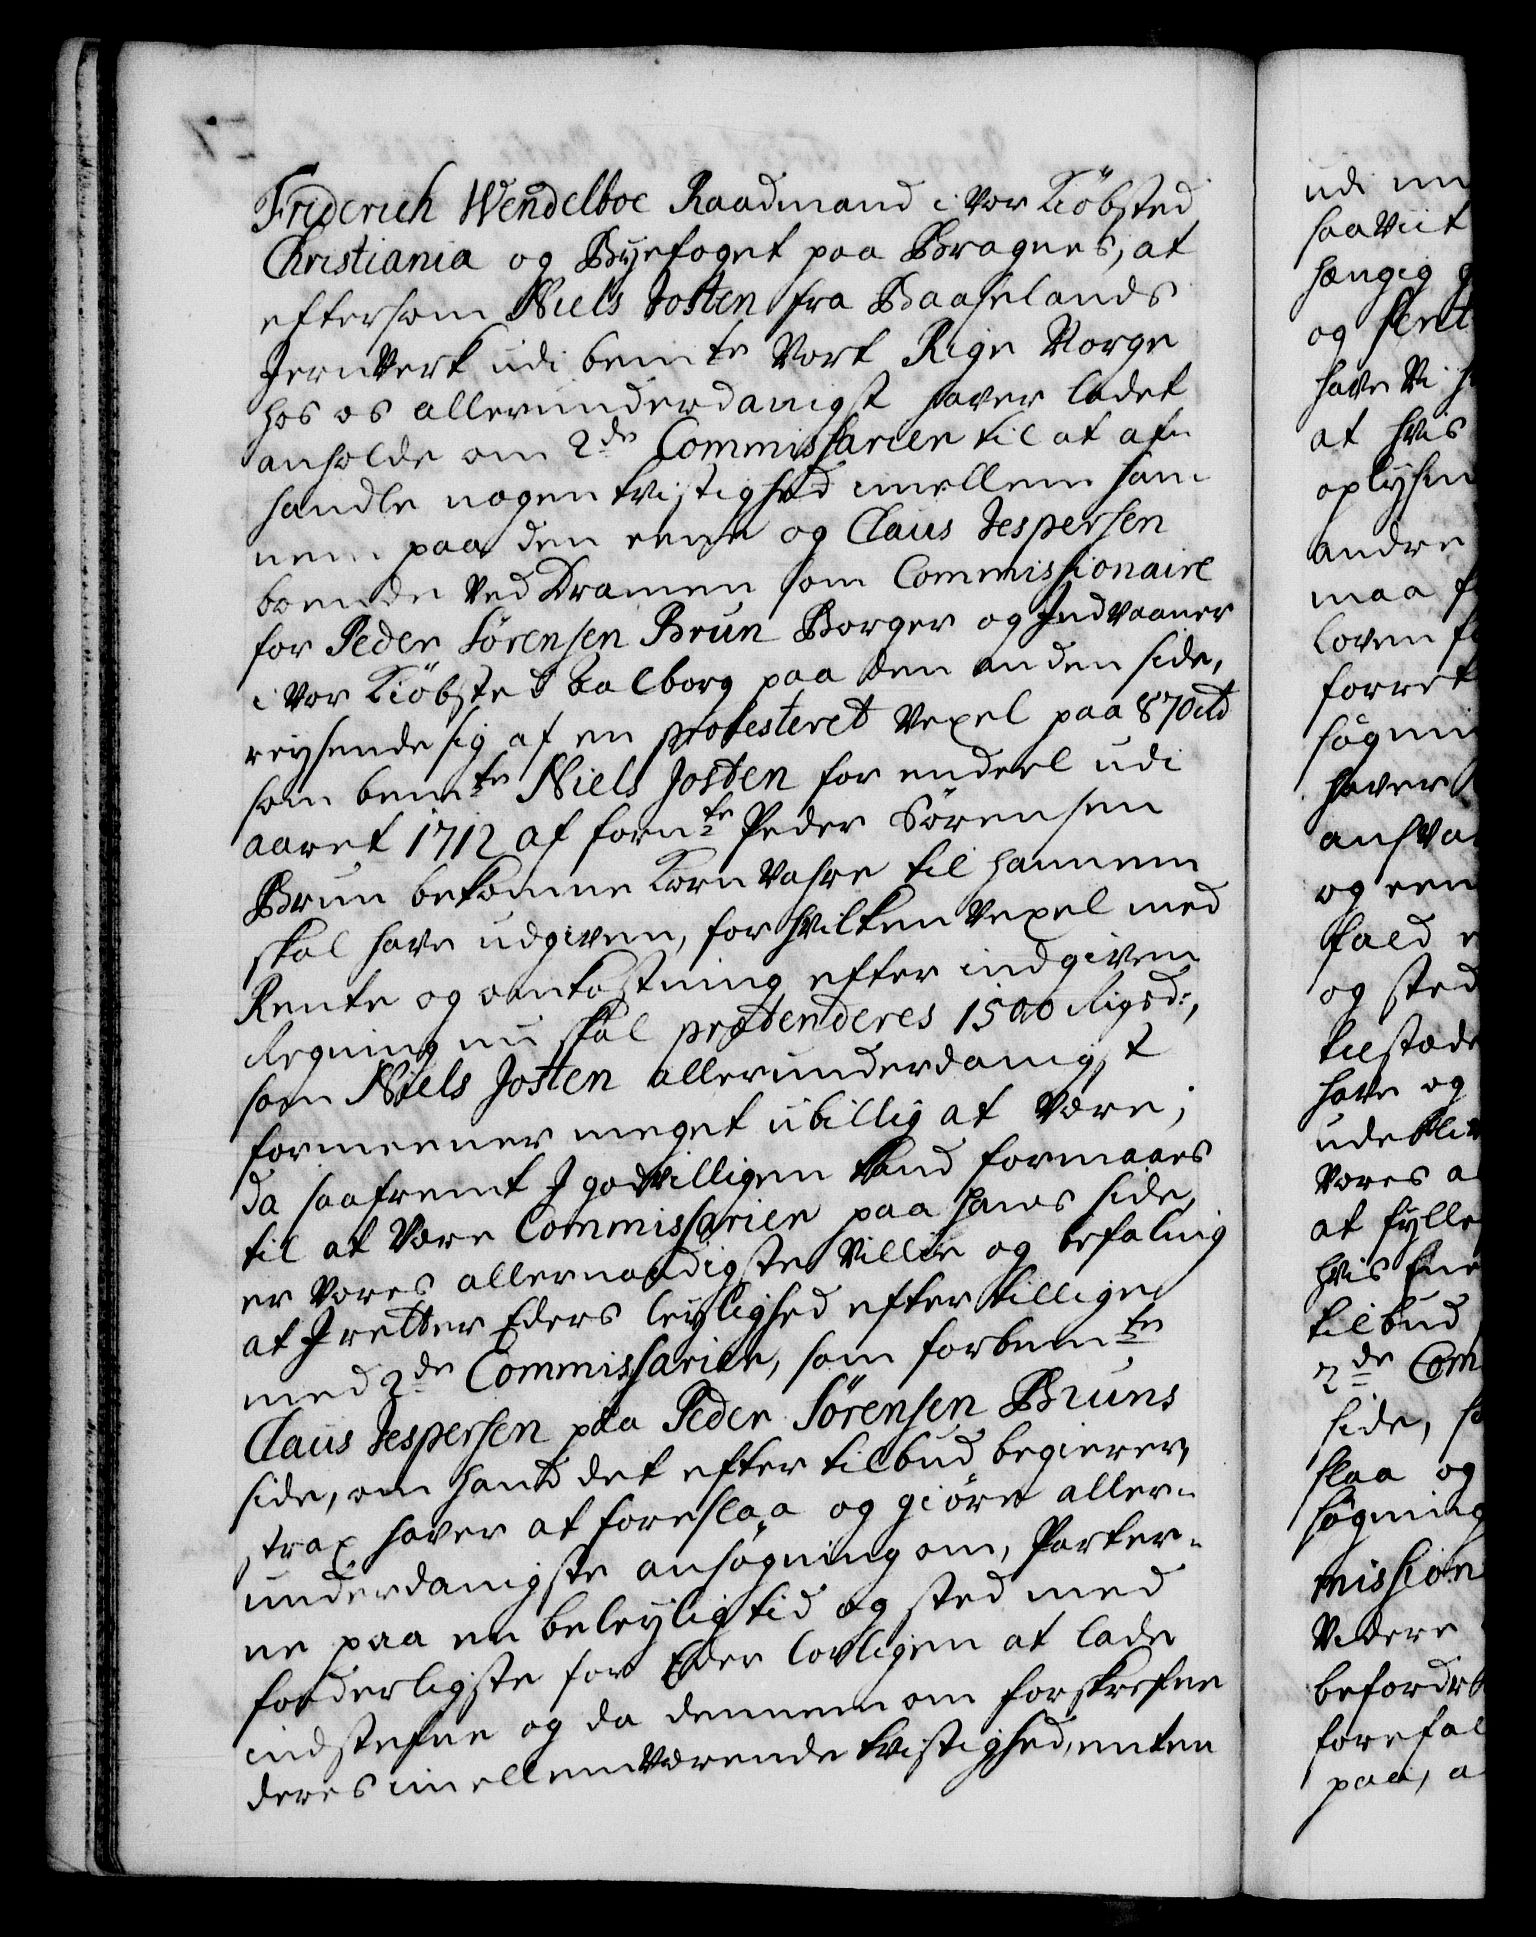 Friderich Wendelboe Raadmand i vor Kiöbsted
Christiania og Byefoget paa Bragnes, at
eftersom Niels Josten fra Baaselands
Jernverk udi bemte Vort Rige Norge
hos os allerunderdanigst haver ladet
anholde om 2de Commissarier til at af-
handle nogen tvistighed imellem han-
nem paa den eene og Claus Jespersen
boende ved Dramen som Commissionaire
for Peder Sörensen Brun Borger og Indvaaner
i vor Kiöbsted Aalborg paa den anden side,
reysende sig af en protesteret Vexel paa 870 rd
som bemte Niels Josten for endeel udi
aaret 1712 af fornte Peder Sörensen
Brun bekomne Korn Vahre til hannem
skal have udgiven, for hvilken Vexel med
Rente og omkostning efter indgiven
Regning nu skal prætenderes 1500 Rigsd:,
som Niels Josten allerunderdanigst
formeener meget ubillig at være;
da saafremt I godvilligen kand formaaes
til at være Commissarier paa hans side,
er Vores allernaadigste Villie og befaling
at I retter Eders leylighed efter tillige
med 2de Commissarier, som forbemte
Claus Jespersen paa Peder Sörensen Bruns
side, om hand det efter tilbud begierer,
strax haver at foreslaa og giöre aller-
underdanigste ansögning om, Parter-
ne paa en beleylig tid og sted med
forderligste for Eder lovligen at lade
indstefne og da dennem om forskrefne
deres imellemværende tvistighed, enten
udi
saaviit
hengig
og
have Vi
at hvis
oplysn
andre
maa
loven
forret
sögni
haver
ansva
og een
fald
og sted
tilstæde
have og
udebliv
Vores a
at fylle
hvis
tilbud
2de Com
side,
slaa og
sögning
mission
videre
befordr
forefal
paa, a